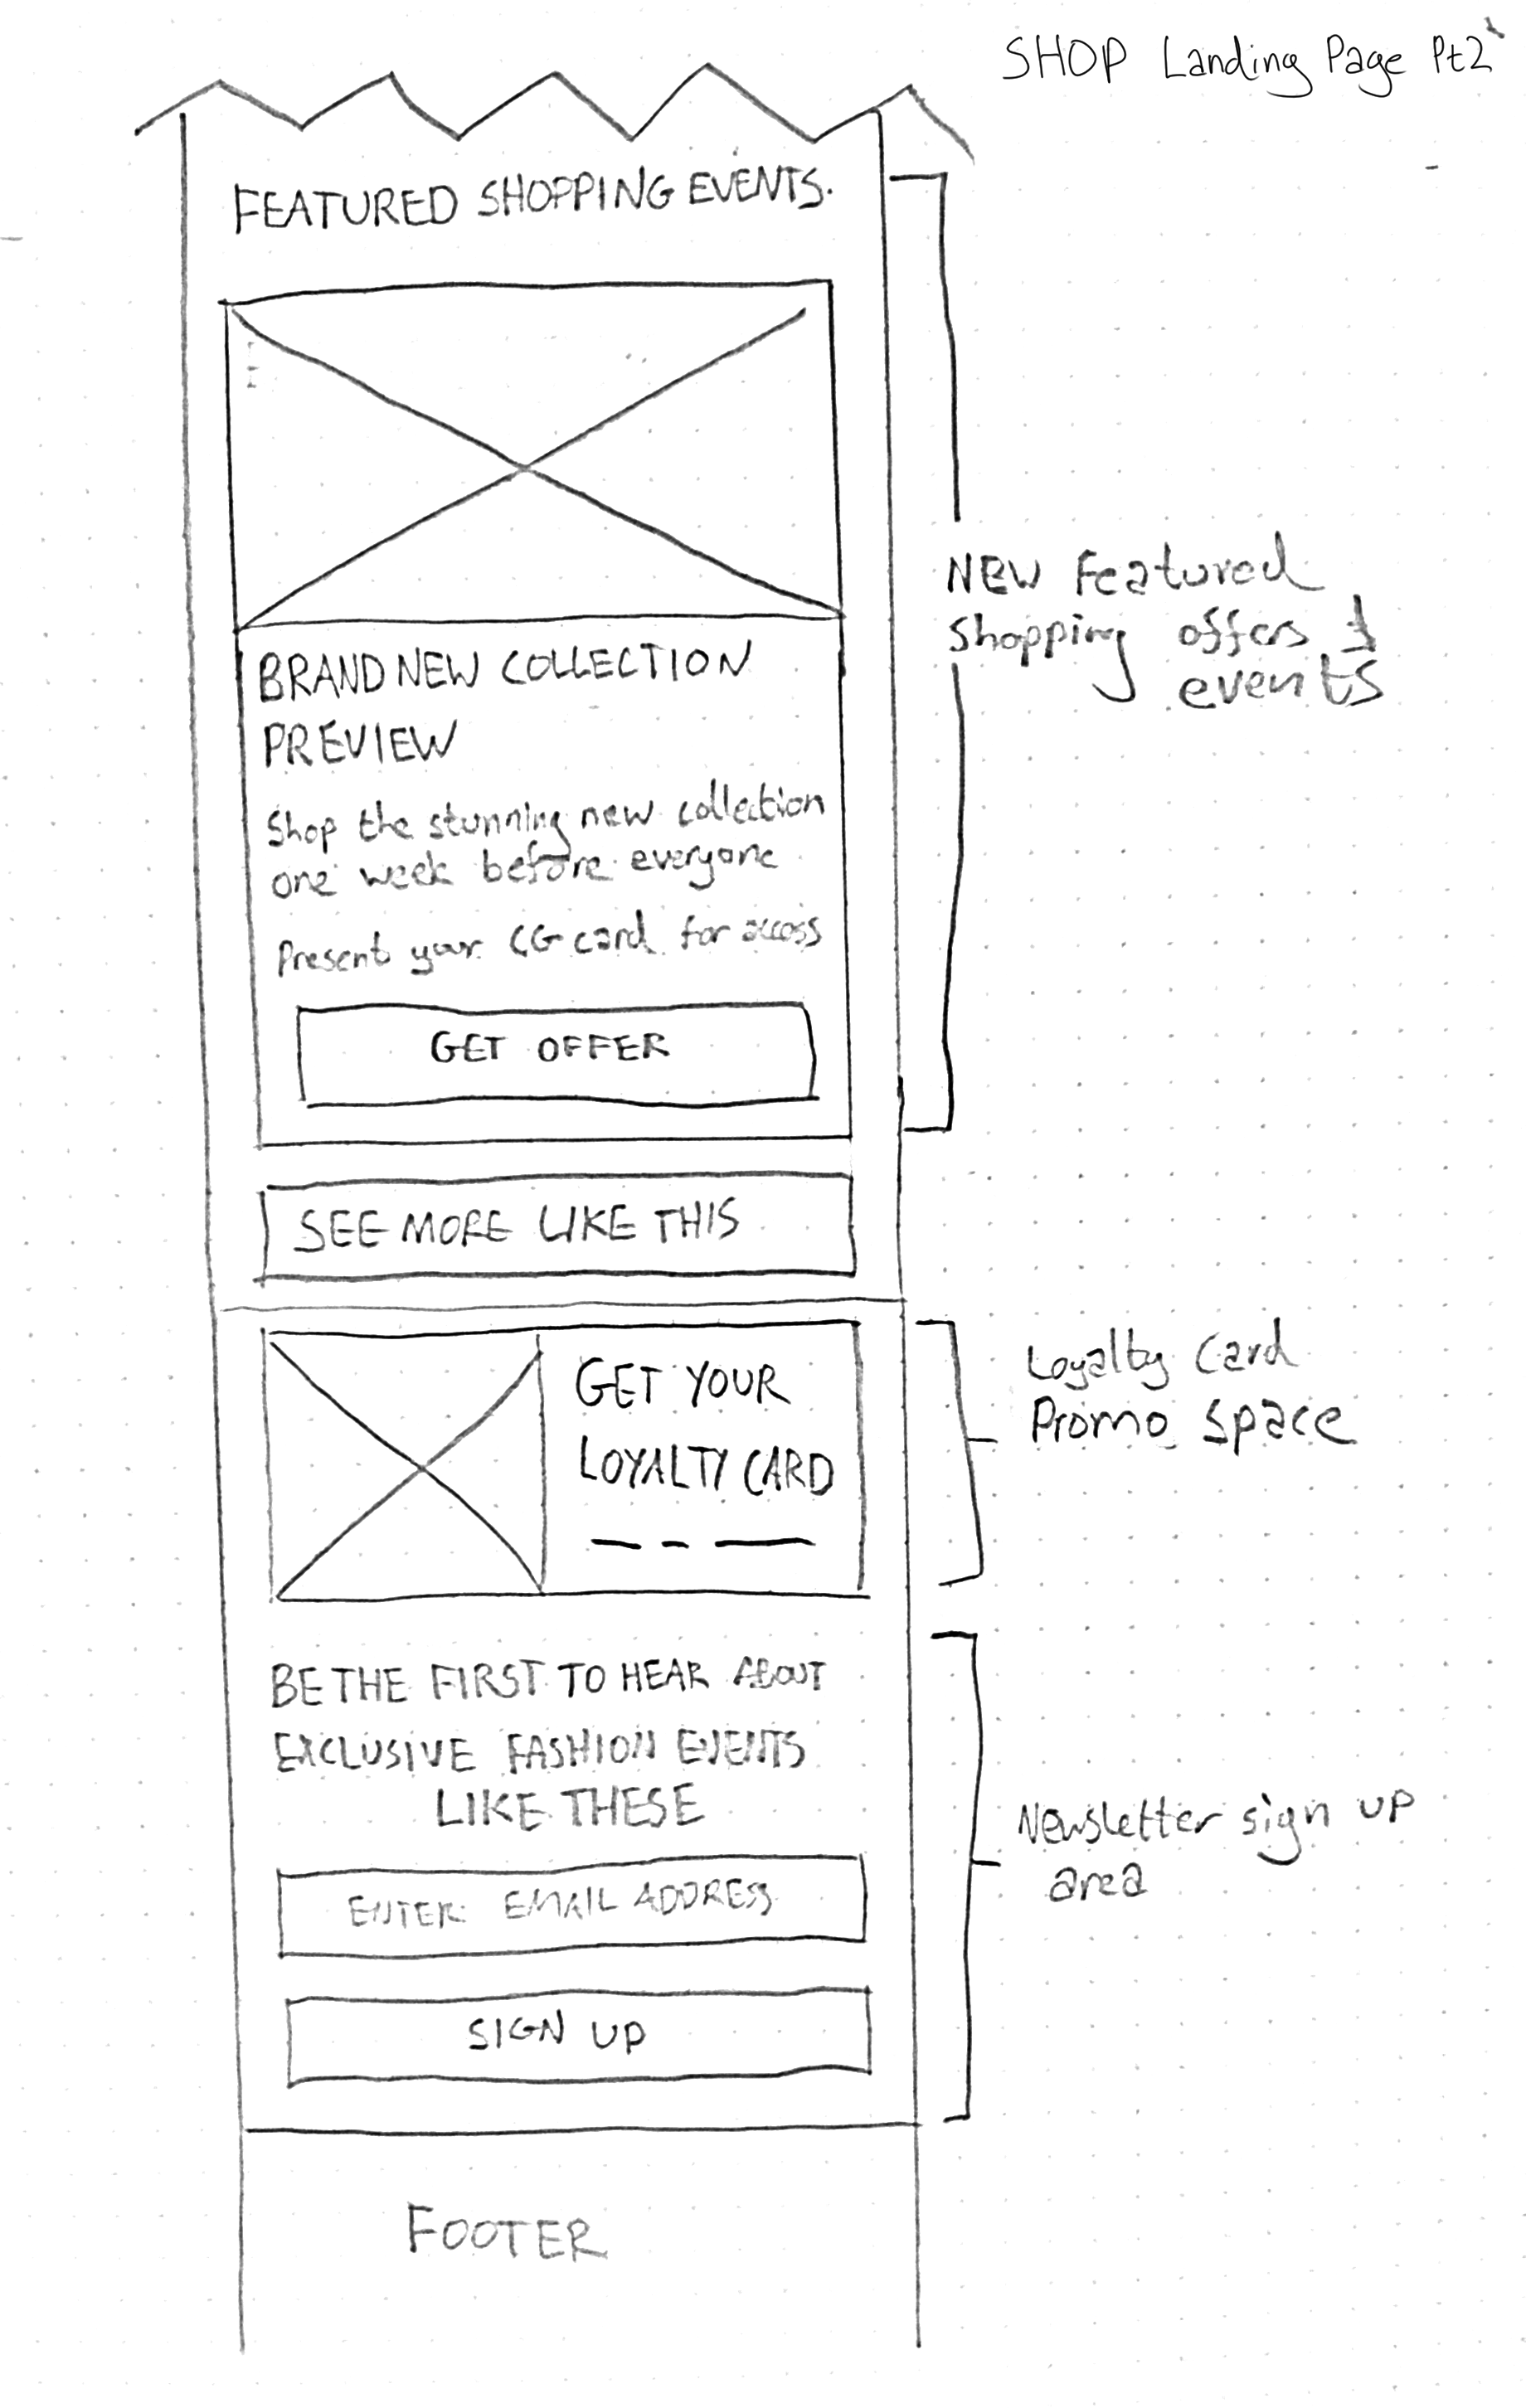 SHOP Landing Page Pt2
FEATURED SHOPPING EVENTS.
NEW Featured
Shopping offers &
events
BRAND NEW COLLECTION
PREVIEW
Shop the stunning new collection
one week before everyone
Present your CG card for access
GET OFFER
SEE MORE LIKE THIS
GET YOUR
LOYALTY CARD
Loyalty Card
Promo Space
BE THE FIRST TO HEAR ABOUT
EXCLUSIVE FASHION EVENTS
LIKE THESE
ENTER EMAIL ADDRESS
Newsletter sign up
area
SIGN UP
FOOTER